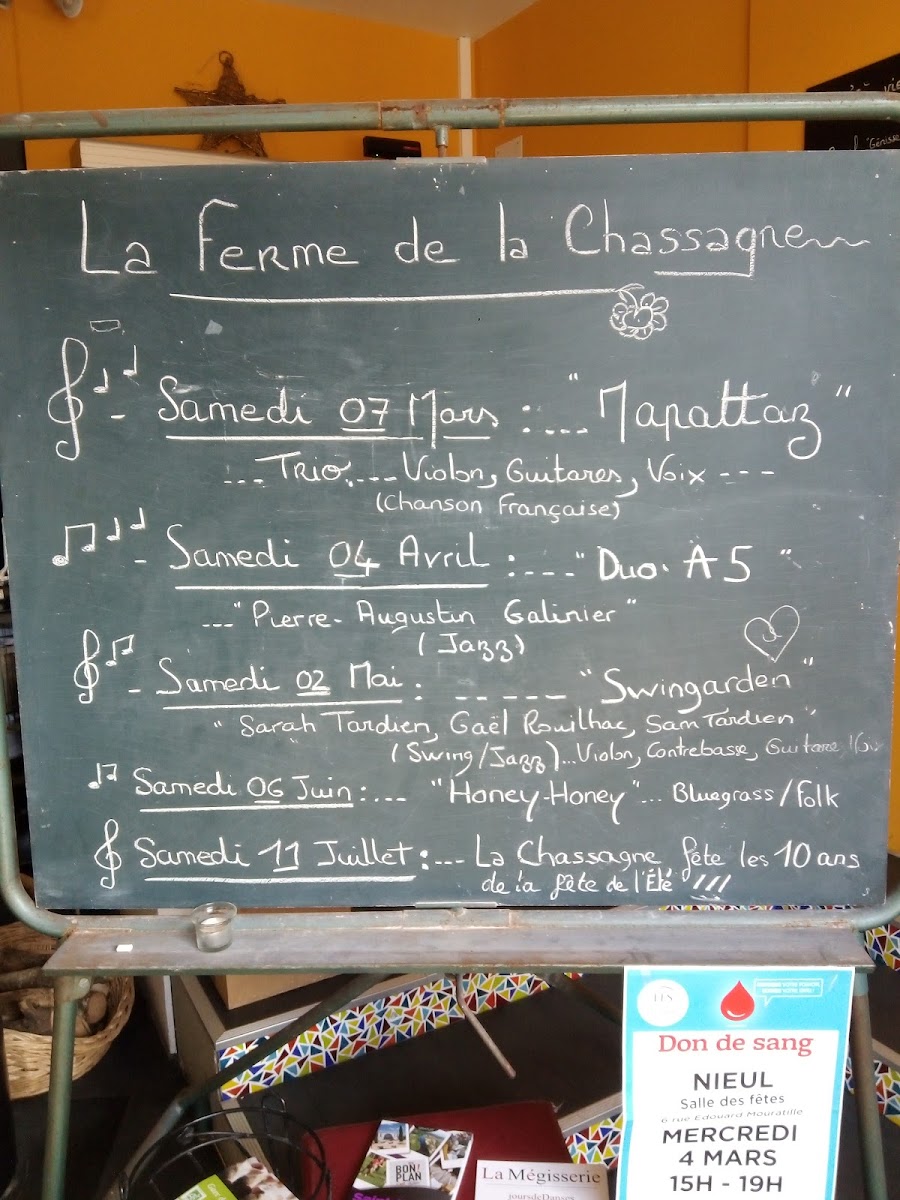 La Ferme de la Chassagne
- Samedi 07 Mars : .... "Mapattaz"
... Trio .... Violon, Guitares, Voix ---
(Chanson Française)
- Samedi 04 Avril : .---- "Duo. A 5 "
..." Pierre-Augustin Galinier "
(Jazz)
- Samedi 02 Mai : ------ "Swingarden"
" Sarah Tardien, Gaël Rouilhac, Sam Tardien "
(Swing/Jazz)...Violon, Contrebasse, Guitare
Samedi 06 Juin : .... "Honey-Honey"... Bluegrass/Folk
Samedi 11 Juillet : .... La Chassagne fête les 10 ans
de la fête de l'Été !!!
Don de sang
NIEUL
Salle des fêtes
6 rue Edouard Mouratille
MERCREDI
4 MARS
15H - 19H
BON PLAN
La Mégisserie
joursdeDanses